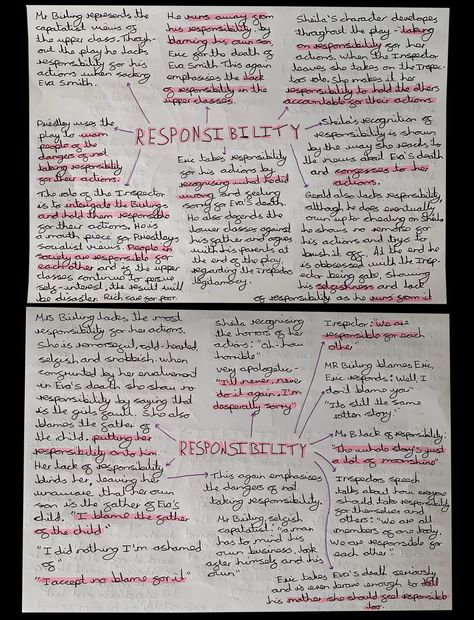 Mr Birling represents the
capatalist views of
the upper class. Through-
out the play he lacks
responsibility for his
actions when sacking
Eva Smith.
He runs away from
his responsibility, by
blaming his own son,
Eric for the death of
Eva Smith. This again
emphasises the lack
of responsibility in the
upper classes.
Sheila's character developes
throughout the play - taking
on responsibility for her
actions. When the Inspector
leaves she takes on the Inspec-
tors role. She makes it her
responsibility to hold the others
accountable for their actions.
RESPONSIBILITY
Priestley uses the
play to warn
people of the
dangers of not
taking responsibility
for their actions.
The role of the Inspector
is to intergate the Birlings
and hold them responsible
for their actions. He is
a mouth piece for Priestleys
socialist views. People in
society are responsible for
each other and is the upper
classes continue to persue
self-interest, the result will
be disaster. Rich care for poor.
Eric takes responsibility
for his actions by
recognising what he did
wrong and feeling
sorry for Eva's death.
He also defends the
lower classes against
his father and agrees
with his parents at
the end of the play,
regarding the Inspectors
legitamacy.
Sheila's recognition of
responsibility is shown
by the way she reacts to
the news about Eva's death
and confesses to her
actions.
Gerald also lacks responsibility,
although he does eventually
own up to cheating on Sheila
he shows no remorse for
his actions and trys to
brush it off. At he
is obsessed with the Insp-
ector being fake, showing
his selfishness and lack
of responsibility as he runs from it
Mrs Birling lacks the most
responsibility for her actions.
She is remorseful, cold-hearted,
selfish and snobbish. When
confrunted by her envolvement
in Eva's death she shows no
responsibility by saying that
is the girls fault. She also
blames the father of
the child, putting her
responsibility onto him.
Her lack of responsibility
blinds her, leaving her
unaware that her own
son is the father of Eva's
child. "I blame the father
of the child"
"I did nothing I'm ashamed
of"
"I accept no blame for it"
Sheila recognising
the horrors of her
actions: "oh - how
horrible"
very apologetic -
"I'll never, never
do it again, I'm
desperatly sorry"
RESPONSIBILITY
This again emphasises
the dangers of not
taking responsibility.
Mr Birling, selfish
capitalist: "a man
has to mind his
own business, look
after himself and his
own"
Inspector: "We are
responsible for each
other"
MR Birling blames Eric,
Eric responds: "Well, I
don't blame you"
"Its still the same
rotten story"
Mr B lack of responsibility:
"The whole story's just
a lot of moonshine"
Inspectors speech
talks about how everyone
should take responsibility
for themselves and
others: "We are all
members of one body.
We are responsible for
each other".
Eric takes Eva's death seriously
and is even brave enough to tell
his mother she should feel responsible
too.